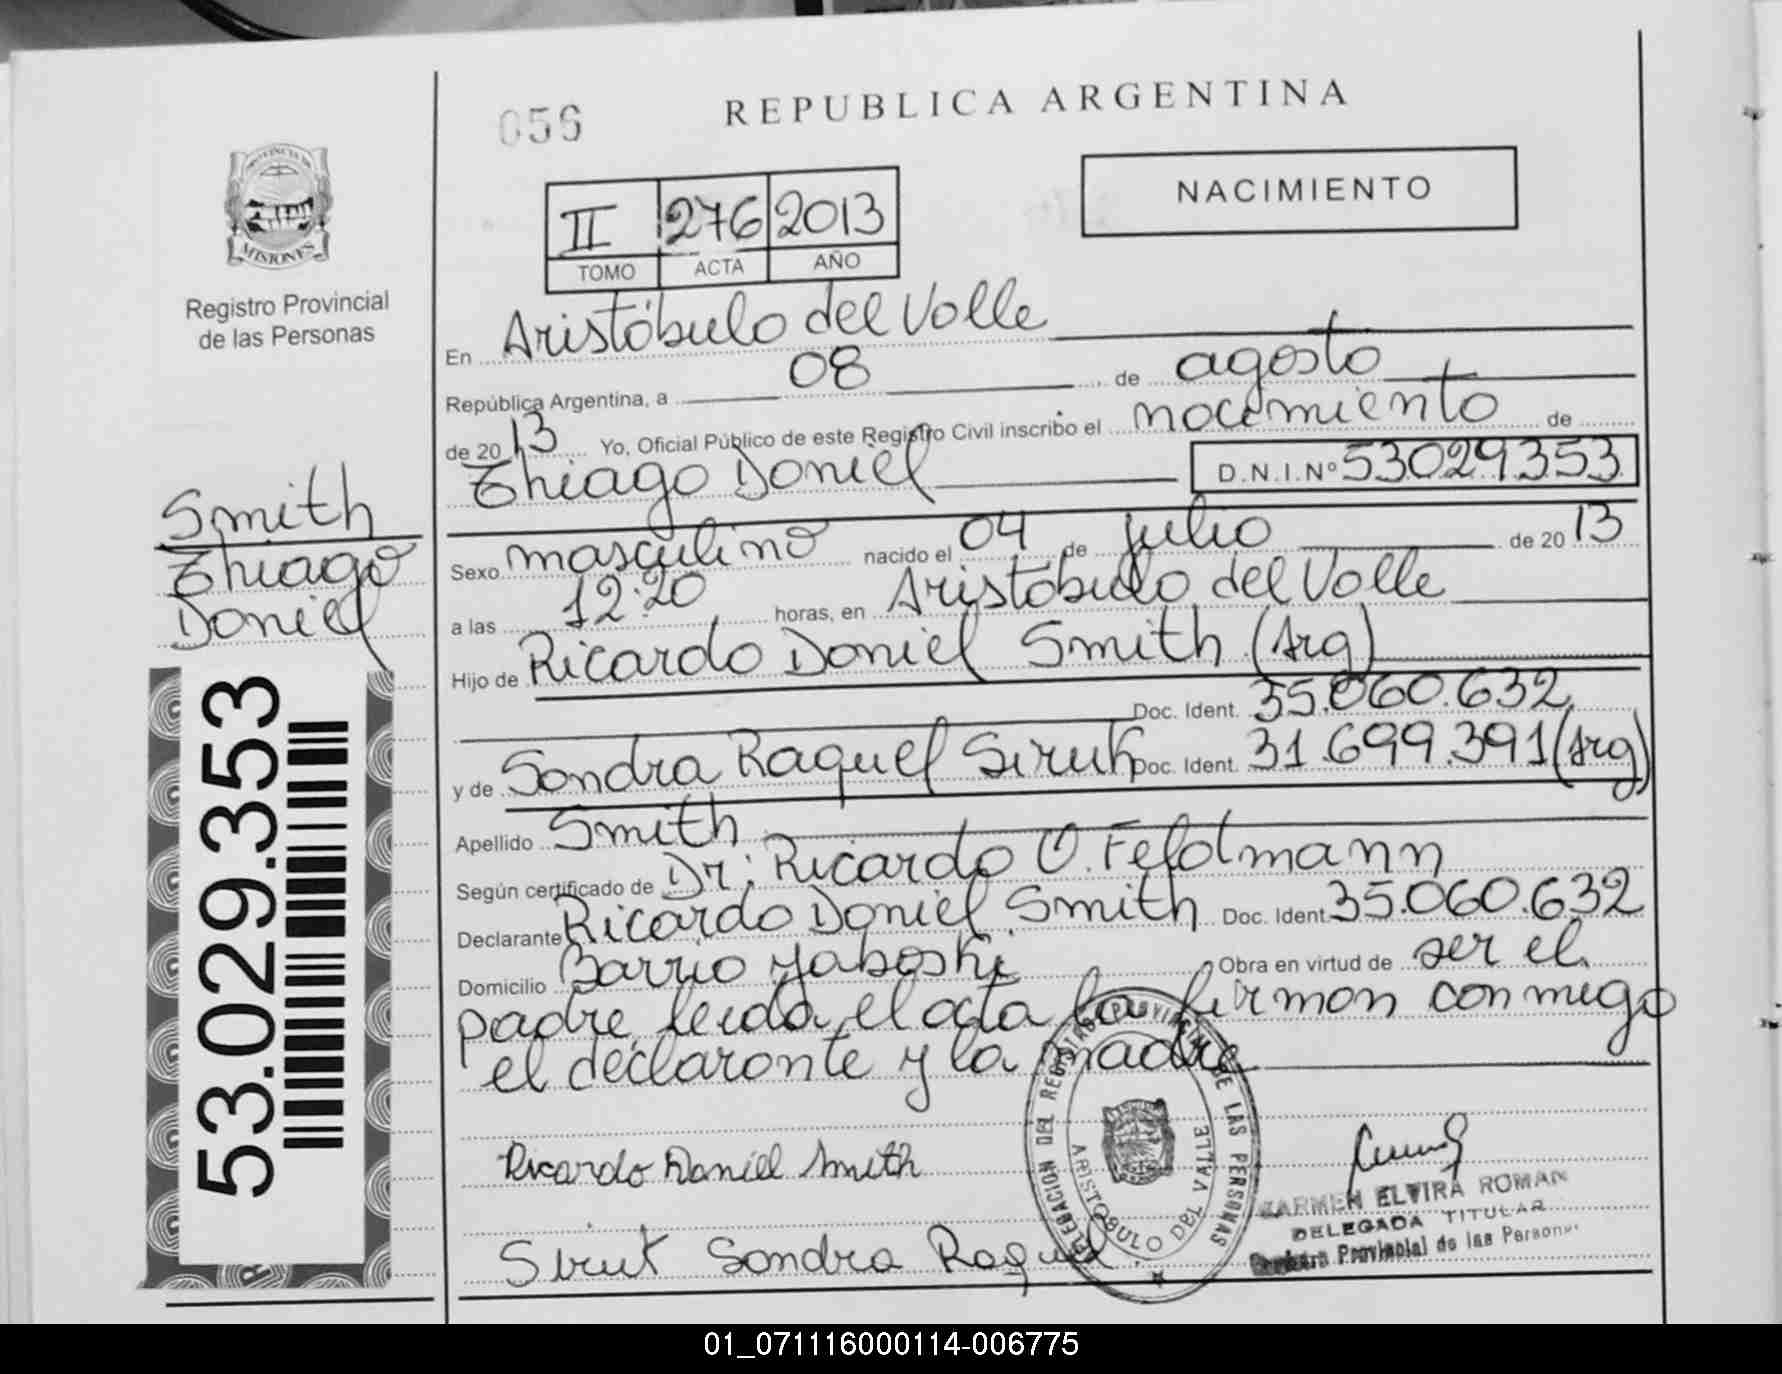 056
REPUBLICA ARGENTINA
NACIMIENTO
PROVINCIA DE
MISIONES
Registro Provincial
de las Personas
II 276 2013
TOMO ACTA AÑO
En Aristóbulo del Valle
República Argentina, a 08 de agosto
de 2013 Yo, Oficial Público de este Registro Civil inscribo el nacimiento de
Thiago Daniel D.N.I.Nº 53029353
Smith
Thiago
Daniel
Sexo masculino nacido el 04 de julio de 2013
a las 12:20 horas, en Aristóbulo del Valle
Hijo de Ricardo Daniel Smith (Arg)
Doc. Ident. 35.060.632
y de Sandra Raquel Siruk Doc. Ident. 31.699.391 (Arg)
Apellido Smith
Según certificado de Dr. Ricardo O. Feldmann
Declarante Ricardo Daniel Smith Doc. Ident. 35.060.632
Domicilio Barrio Yaboski Obra en virtud de ser el
padre, leida el acta la firman conmigo
el declarante y la madre
53.029.353
Ricardo Daniel Smith
Siruk Sandra Raquel
DELEGACION DEL REGISTRO PROVINCIAL DE LAS PERSONAS
ARISTOBULO DEL VALLE
CARMEN ELVIRA ROMAN
DELEGADA TITULAR
Provincial de las Personas
01_071116000114-006775